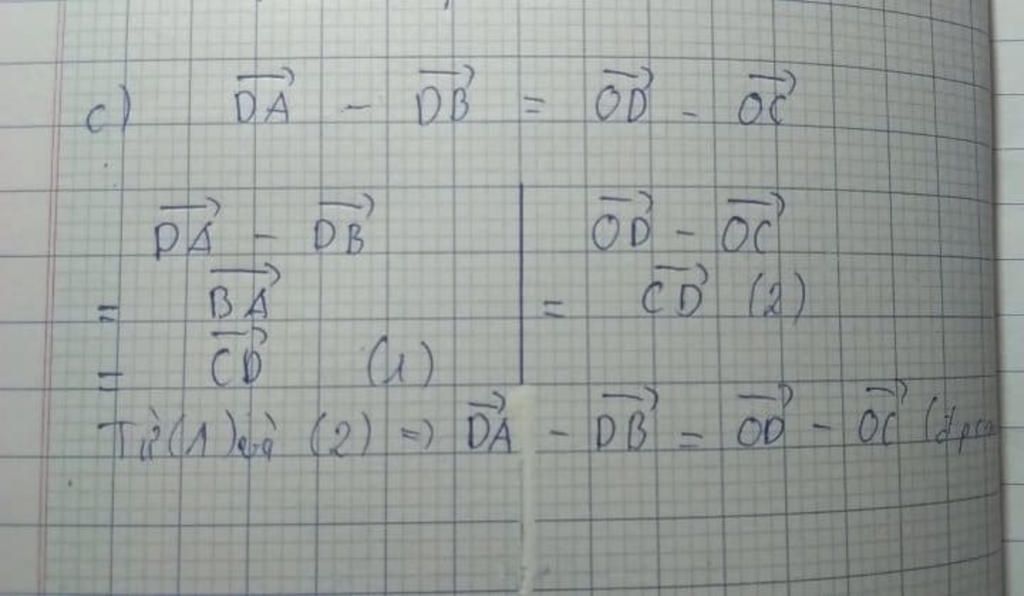 c) \overrightarrow{DA} - \overrightarrow{DB} = \overrightarrow{OD} - \overrightarrow{OC}
\overrightarrow{DA} - \overrightarrow{DB}
= \overrightarrow{BA}
= \overrightarrow{CD} (1)
\overrightarrow{OD} - \overrightarrow{OC}
= \overrightarrow{CD} (2)
Từ (1) và (2) => \overrightarrow{DA} - \overrightarrow{DB} = \overrightarrow{OD} - \overrightarrow{OC}